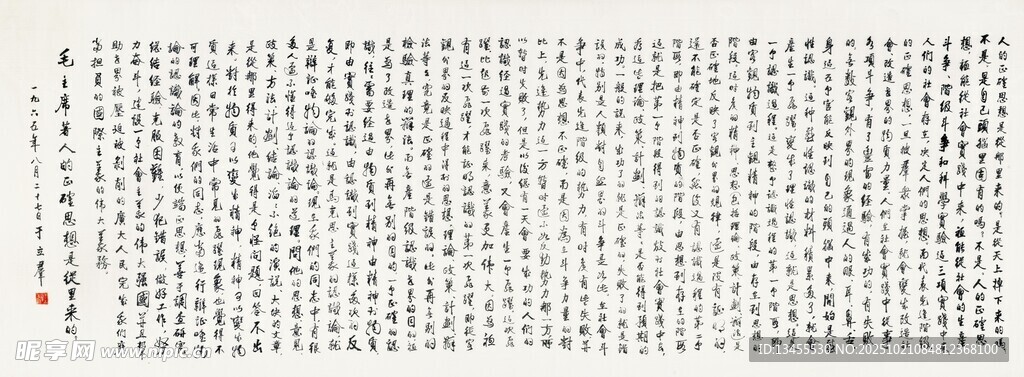 人的正確思想是從那里來的是從天上掉下來的嗎
不是是自己頭腦里固有的嗎不是人的正確思
想祇能從社會實踐中來祇能從社會的生產
斗爭階級斗爭和科學實驗這三項實踐中來
人們的社會存在決定人們的思想而代表先進階級
的正確思想一旦被群衆掌握就會變成改造社
會改造世界的物質力量人們在社會實踐中從事
各項斗爭有了豐富的經驗有成功的有失敗
的無數客觀外界的現象通過人的眼耳鼻舌
身這五個官能反映到自己的頭腦中來開始是感
性認識這種感性認識的材料積累多了就會
產生一個飛躍變成了理性認識這就是思想這是
一個認識過程這是整個認識過程的第一個階段即
由客觀物質到主觀精神的階段由存在到思想的
階段這時候的精神思想包括理論政策計劃辦法是
否正確地反映了客觀外界的規律還是沒有證明的
還不能確定是否正確然後又有認識過程的第二個
階段即由精神到物質的階段由思想到存在的階段
這就是把第一個階段得到的認識放到社會實踐中去
看這些理論政策計劃辦法等等是否能得到預期的
成功一般的說來成功了的就是正確的失敗了的就是錯
誤的特別是人類對自然界的斗爭是如此在社會斗
爭中代表先進階級的勢力有時候有些失敗並
不是因爲思想不正確而是因爲在斗爭力量的對
比上先進勢力這一方暫時還不如反動勢力那一方所
以暫時失敗了但是以後總有一天會要成功的人們的
認識經過實踐的考驗又會產生一個飛躍這次飛
躍比起前一次飛躍來意義更加偉大因爲祇
有這一次飛躍才能證明認識的第一次飛躍即從客
觀外界的反映過程中得到的思想理論政策計劃辦
法等等究竟是正確的還是錯誤的此外再無別的
檢驗真理的辦法而無產階級認識世界的目的祇
是爲了改造世界此外再無別的目的一個正確的認
識往往需要經過由物質到精神由精神到物質
即由實踐到認識由認識到實踐這樣多次的反
復才能夠完成這就是馬克思主義的認識論就
是辯證唯物論的認識論現在我們的同志中有很
多人還不懂得這個認識論的道理問他的思想意見
政策方法計劃結論滔滔不絕的演說大塊的文章
是從那里得來的他覺得是個怪問題回答不出
來對於物質可以變成精神精神可以變成物
質這樣日常生活中常見的飛躍現象也覺得不
可理解因此對我們的同志應當進行辯證唯物
論的認識論的教育以便端正思想善于調查研究
總結經驗克服困難少犯錯誤做好工作努
力奮斗建設一個社會主義的偉大強國並且幫
助世界被壓迫被剝削的廣大人民完成我們應
當擔負的國際主義的偉大義務
毛主席著人的正確思想是從里來的
一九六五年八月二十七日于立群
昵享网 www.nipic.cn
ID:13455530 NO:20251021084812368100